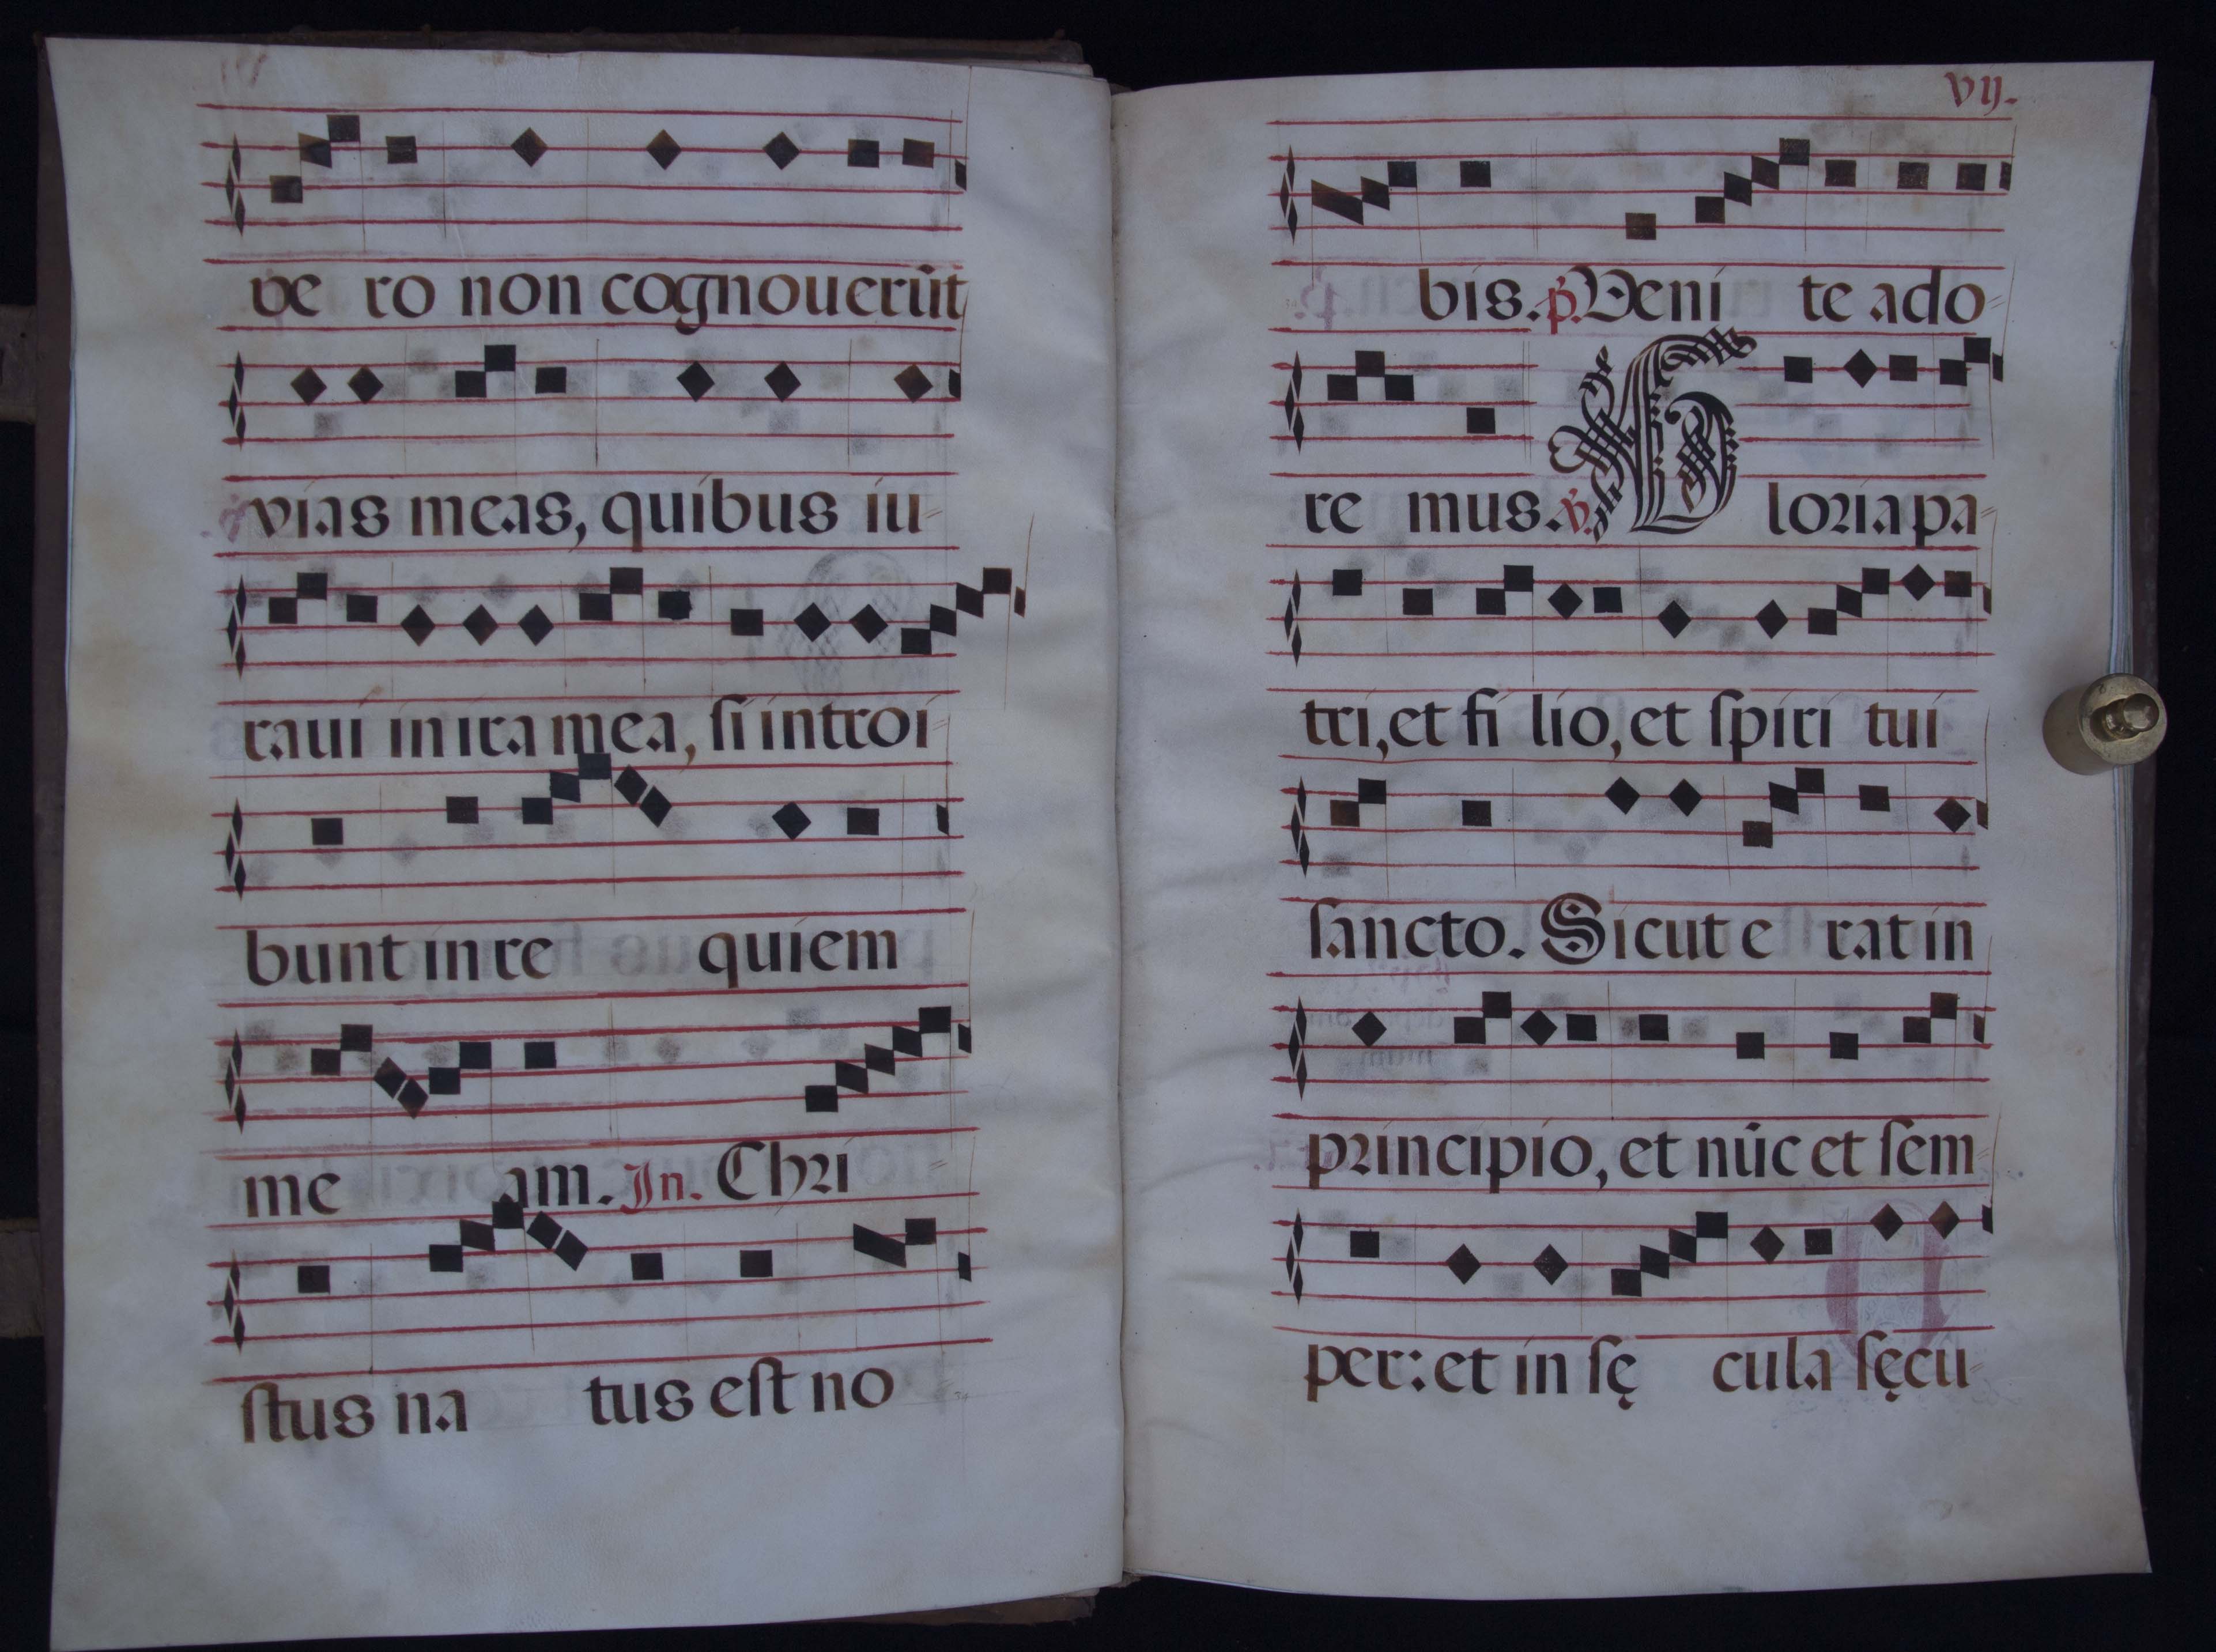 ve ro non cognouerūt
vias meas, quibus iu-
raui in ira mea, si introi-
bunt in re quiem
me am. In. Chri-
stus na tus est no
vij.
bis. p. Veni te ado-
re mus. v. Gloria pa-
tri, et fi lio, et spiri tui
sancto. Sicut e rat in
principio, et nūc et sem
per: et in sę cula sęcu-